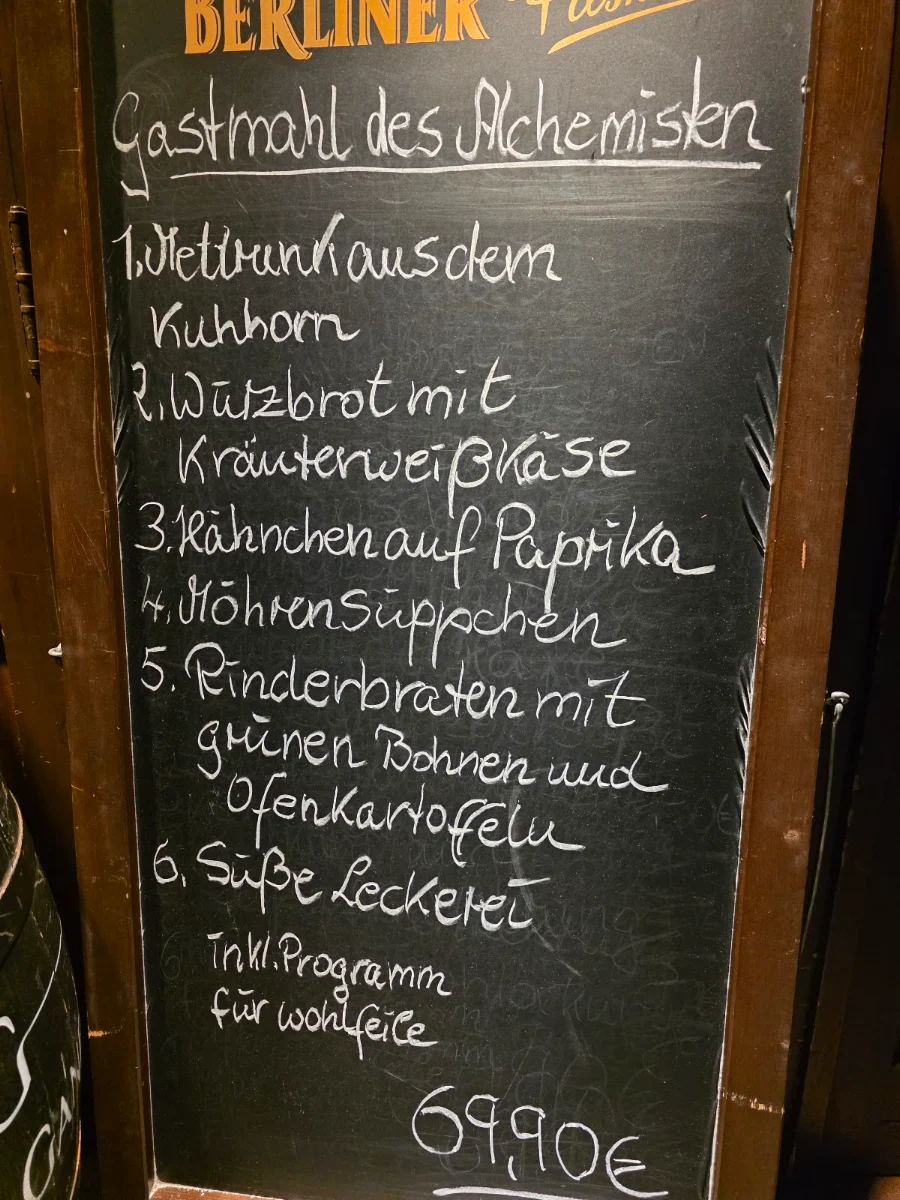 BERLINER
Gastmahl des Alchemisten
1. Mettrunk aus dem
Kuhhorn
2. Würzbrot mit
Kräuterweißkäse
3. Hähnchen auf Paprika
4. Möhrensüppchen
5. Rinderbraten mit
grünen Bohnen und
Ofenkartoffeln
6. Süße Leckerei
inkl. Programm
für wohlfeile
69,90€